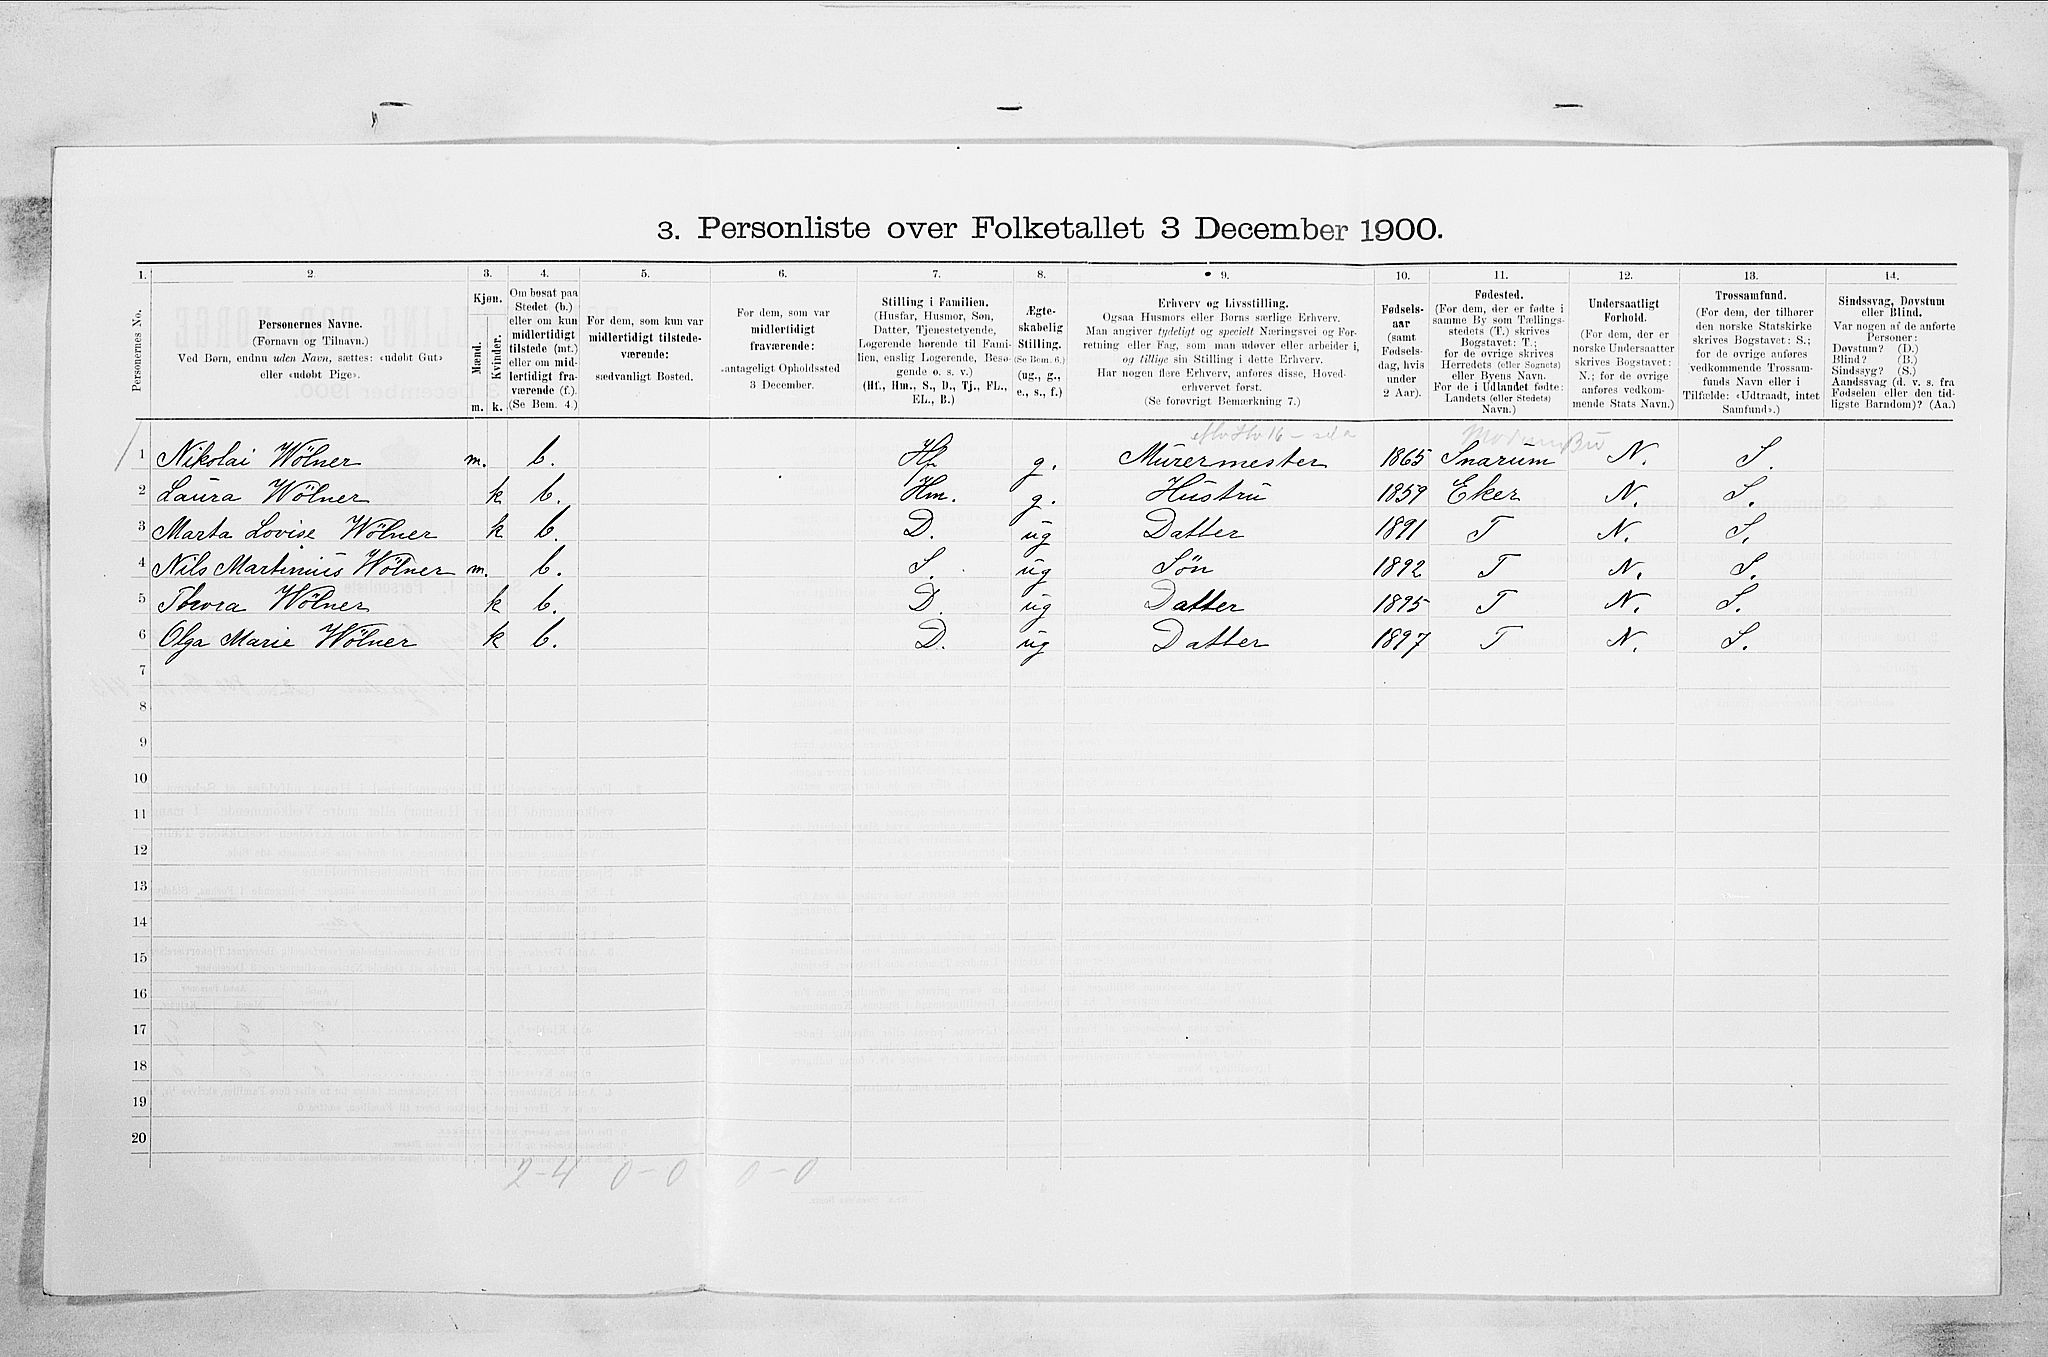 3. Personliste over Folketallet 3 December 1900.
1. 2. 3. 4. 5. 6. 7. 8. 9. 10. 11. 12. 13. 14.
Personernes No.
Personernes Navne.
(Fornavn og Tilnavn.)
Ved Børn, endnu uden Navn, sættes: «udøbt Gut»
eller «udøbt Pige».
Kjøn.
Mænd. Kvinder.
m. k.
Om bosat paa
Stedet (b.)
eller om kun
midlertidigt
tilstede (mt.)
eller om mid-
lertidigt fra-
værende (f.).
(Se Bem. 4.)
For dem, som kun var
midlertidigt tilstede-
værende:
sædvanligt Bosted.
For dem, som var
midlertidigt
fraværende:
antageligt Opholdssted
3 December.
Stilling i Familien.
(Husfar, Husmor, Søn,
Datter, Tjenestetyende,
Logerende hørende til Fami-
lien, enslig Logerende, Besø-
gende o. s. v.)
(Hf., Hm., S., D., Tj., FL.,
EL., B.)
Ægte-
skabelig
Stilling.
(Se Bem. 6.)
(ug., g.,
e., s., f.)
Erhverv og Livsstilling.
Ogsaa Husmors eller Børns særlige Erhverv.
Man angiver tydeligt og specielt Næringsvei og For-
retning eller Fag, som man udøver eller arbeider i,
og tillige sin Stilling i dette Erhverv.
Har nogen flere Erhverv, anføres disse, Hoved-
erhvervet først.
(Se forøvrigt Bemærkning 7.)
Fødsels-
aar
(samt
Fødsels-
dag, hvis
under
2 Aar).
Fødested.
(For dem, der er fødte i
samme By som Tællings-
stedets (T.) skrives
Bogstavet: T.;
for de øvrige skrives
Herredets (eller Sognets)
eller Byens Navn.
For de i Udlandet fødte:
Landets (eller Stedets)
Navn.)
Undersaatligt
Forhold.
(For dem, der er
norske Undersaatter
skrives Bogstavet:
N.; for de øvrige
anføres vedkom-
mende Stats Navn.)
Trossamfund.
(For dem, der tilhører
den norske Statskirke
skrives Bogstavet: S.;
for de øvrige anføres
vedkommende Trossam-
funds Navn eller i
Tilfælde: «Udtraadt, intet
Samfund».)
Sindssvag, Døvstum
eller Blind.
Var nogen af de anførte
Personer:
Døvstum? (D.)
Blind? (B.)
Sindssyg? (S.)
Aandssvag (d. v. s. fra
Fødselen eller den tid-
ligste Barndom)? (Aa.)
1 Nikolai Wölner m. b. Hf. g. Murermester 1865 Snarum N. S.
2 Laura Wölner k b. Hm. g. Hustru 1859 Eker N. S.
3 Marta Lovise Wölner k b. D. ug Datter 1891 T N. S.
4 Nils Martinius Wölner m. b. S. ug Søn 1892 T N. S.
5 Thora Wölner k b. D. ug Datter 1895 T N. S.
6 Olga Marie Wölner k b. D. ug Datter 1897 T N. S.
7
8
9
10
11
12
13
14
15
16
17
18
19
20
2-4 0-0 0-0